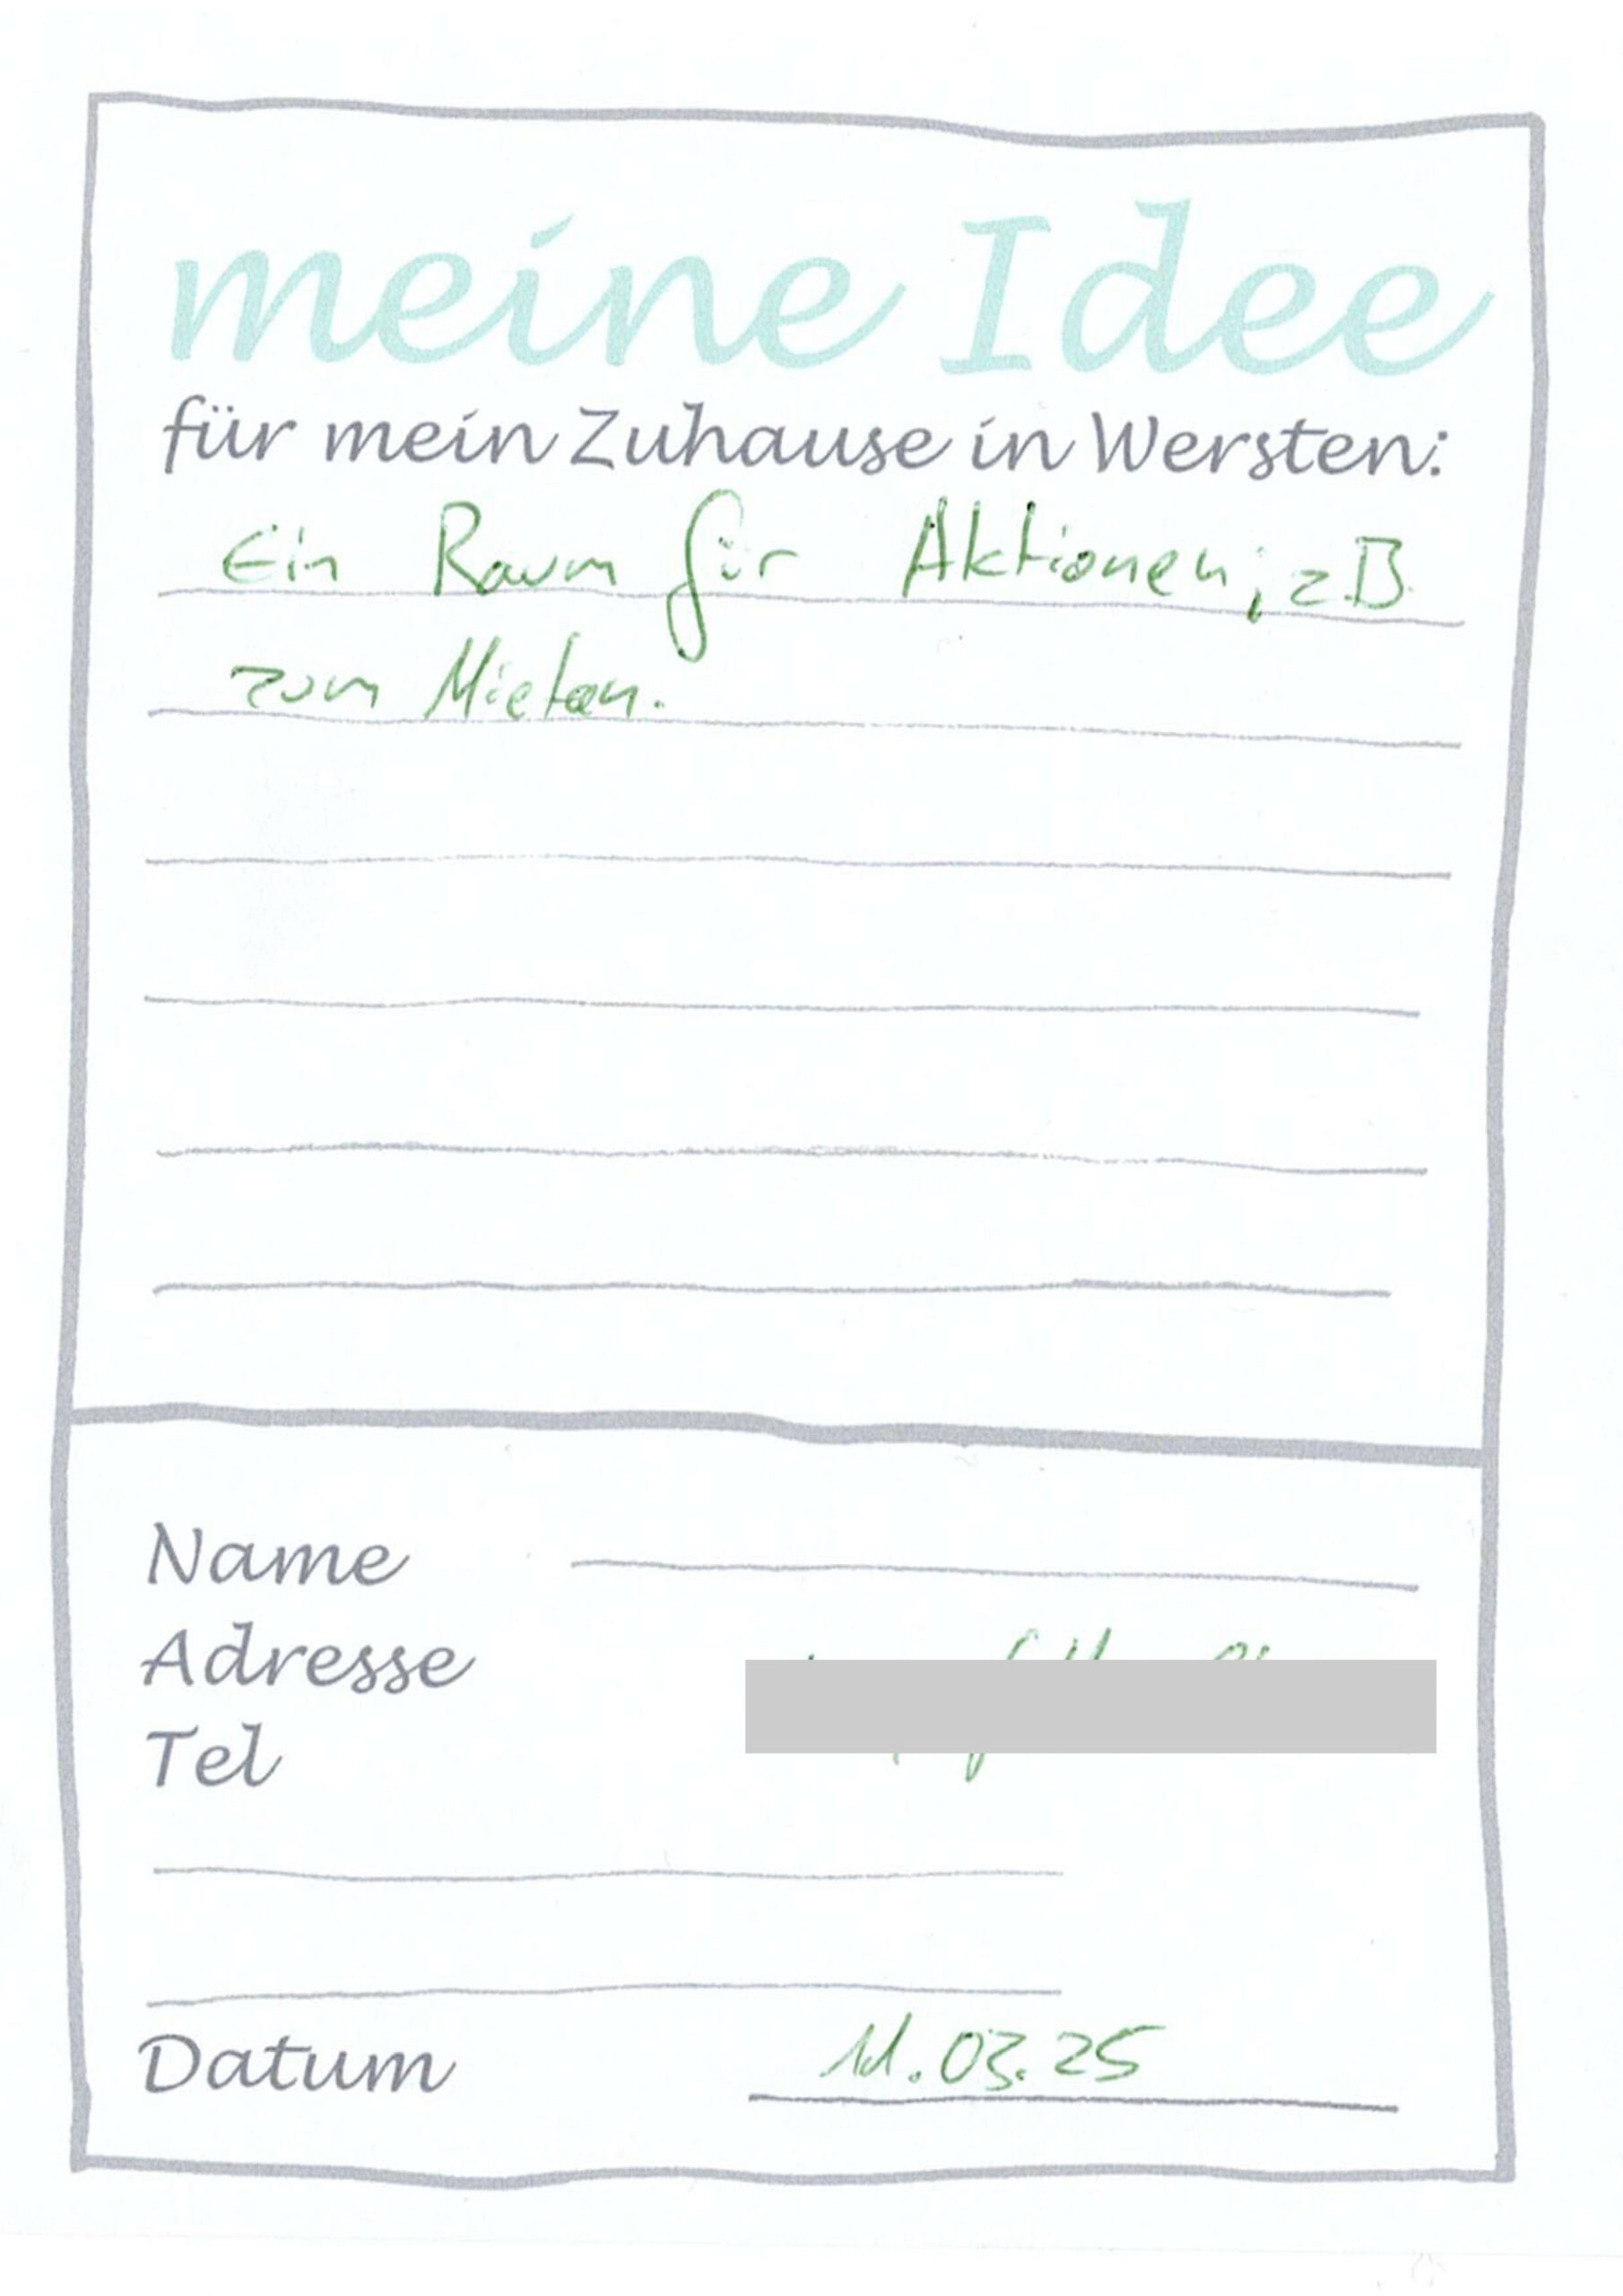 meine Idee
für mein Zuhause in Wersten:
Ein Raum für Aktionen; z.B.
zum Mieten.
Name
Adresse
Tel
Datum 11.03.25